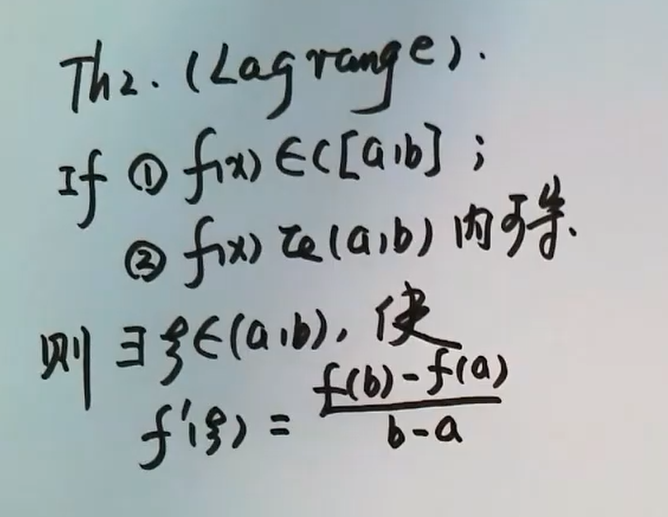 Th2. (Lagrange).
If ① f(x) ∈ C[a,b] ;
② f(x) 在(a,b) 内可导.
则 ∃ ξ∈(a,b), 使
f'(ξ) = \frac{f(b)-f(a)}{b-a}